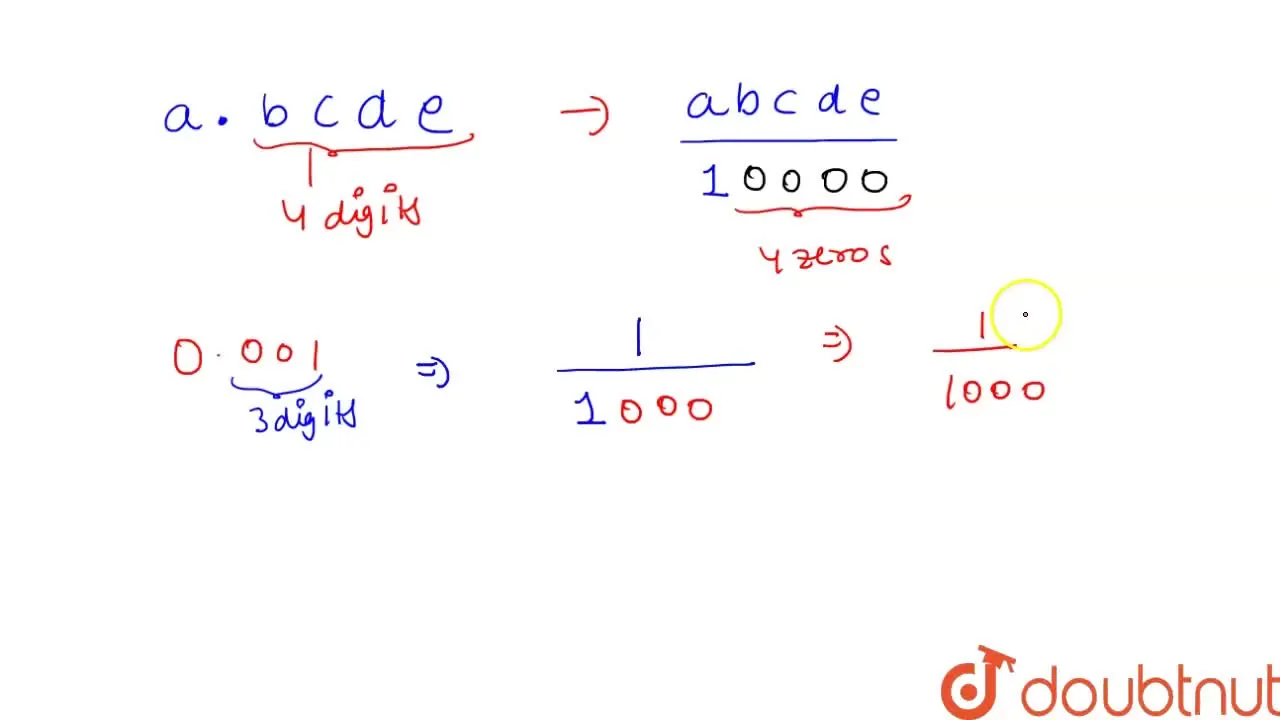 a . b c d e → a b c d e
1 0 0 0 0
4 digits
4 zeros
0 . 0 0 1 ⇒ 1 ⇒ 1
1 0 0 0 1 0 0 0
3 digits
doubtnut